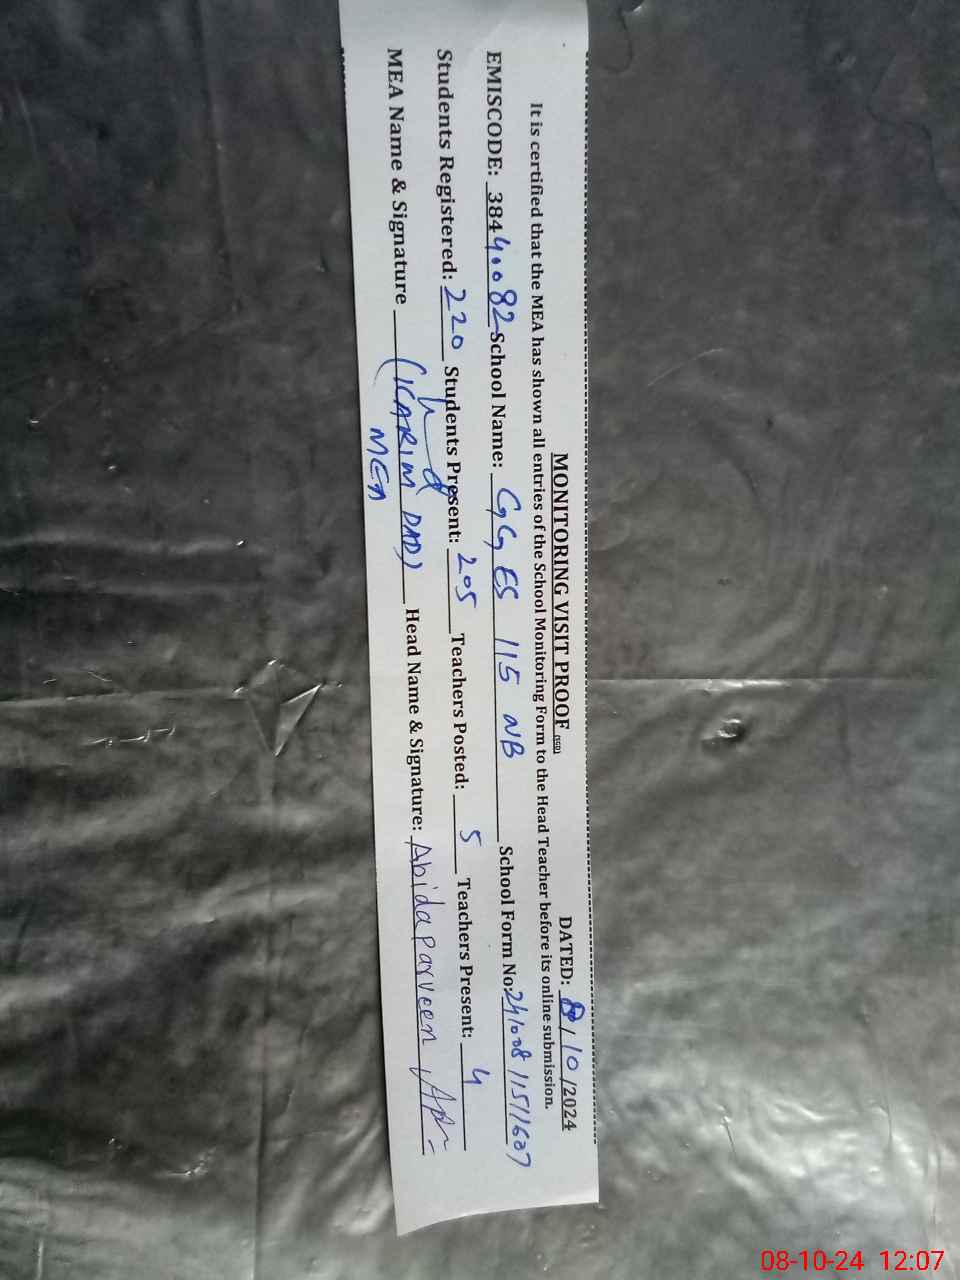 MONITORING VISIT PROOF (SED) DATED: 8/10/2024
It is certified that the MEA has shown all entries of the School Monitoring Form to the Head Teacher before its online submission.
EMISCODE: 38440082 School Name: GGES 115 NB School Form No: 241008 11511607
Students Registered: 220 Students Present: 205 Teachers Posted: 5 Teachers Present: 4
MEA Name & Signature (KARIM DAD) Head Name & Signature: Abida Parveen
MEA
08-10-24 12:07